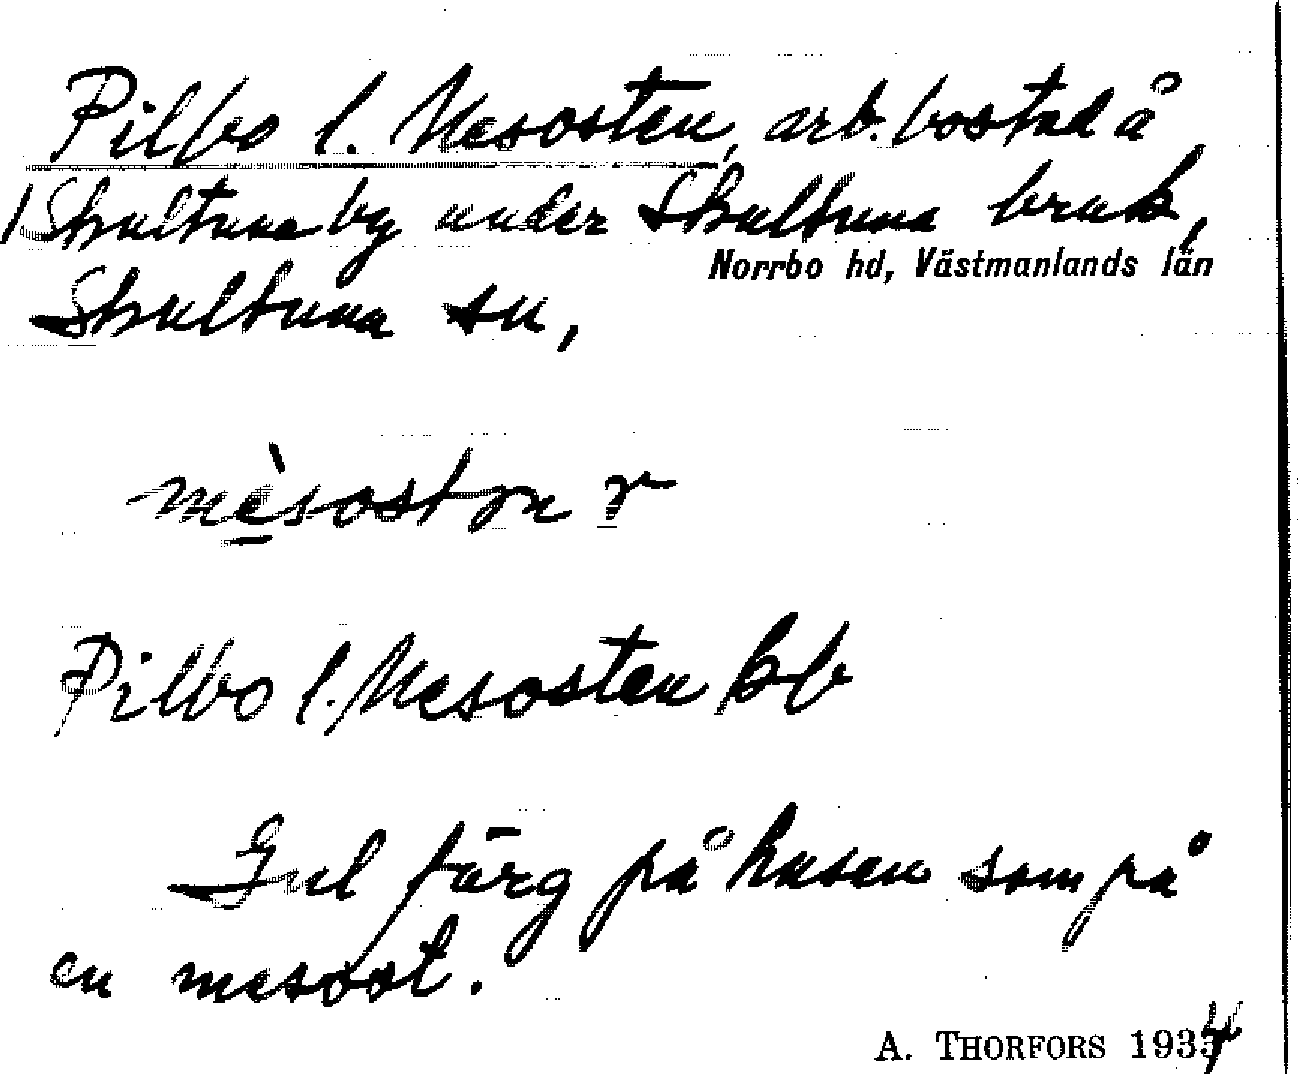 Pilbo l. Mesosten, arb.bostad å
Skultuna by under Skultuna bruk,
Norrbo hd, Västmanlands län
Skultuna sn,
mèsostɜn r
Pilbo l. Mesosten bb
Gul färg på husen som på
en mesost.
A. THORFORS 1934